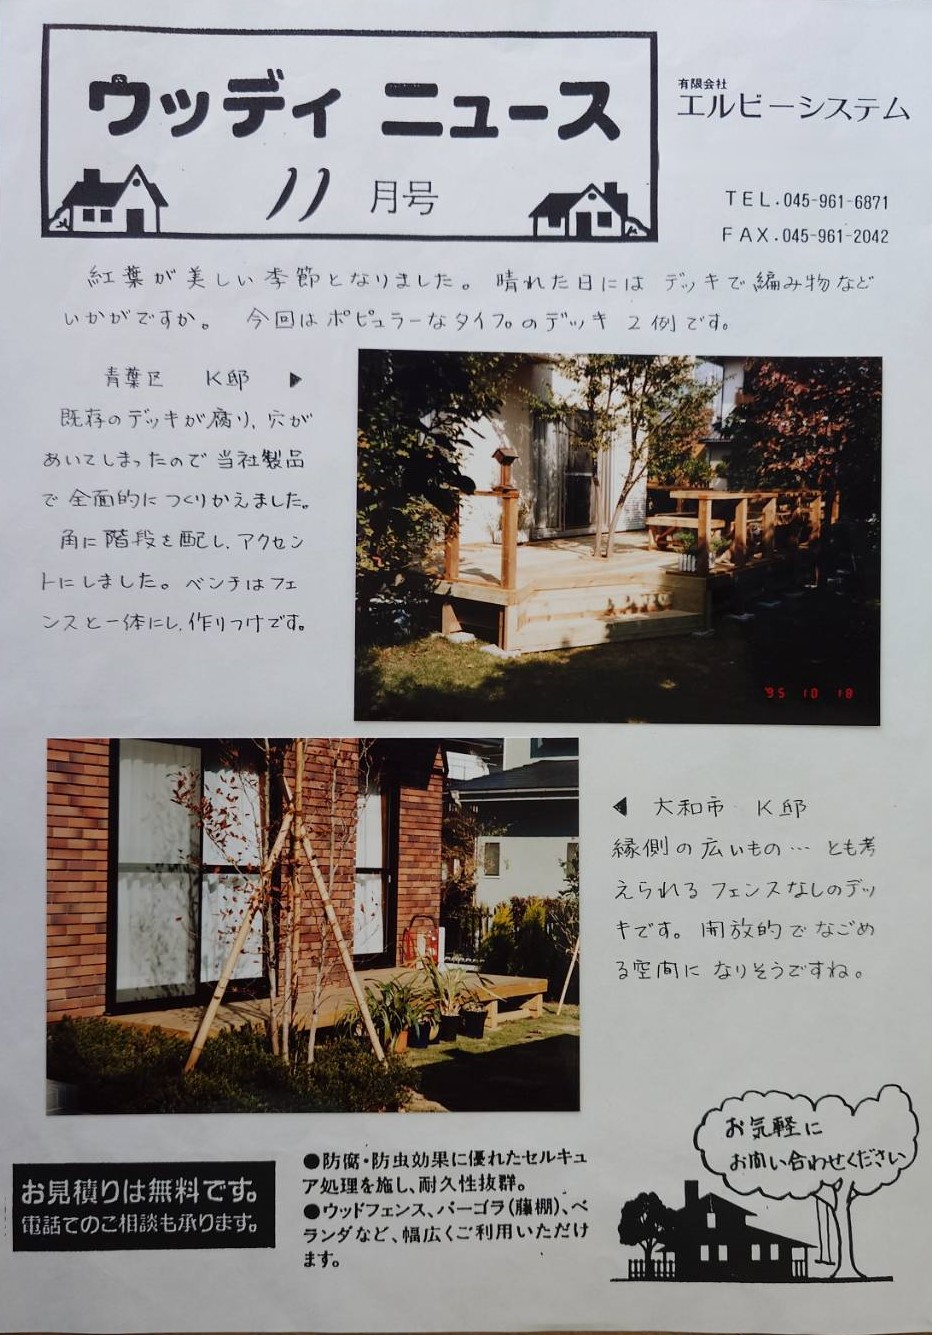 ウッディ ニュース
11 月号
有限会社
エルビーシステム
TEL.045-961-6871
FAX.045-961-2042
紅葉が美しい季節となりました。 晴れた日には デッキで編み物など
いかがですか。 今回はポピュラーなタイプのデッキ 2例です。
青葉区 K邸 ▶
既存のデッキが腐り、穴が
あいてしまったので当社製品
で全面的につくりかえました。
角に階段を配し、アクセン
トにしました。ベンチはフェ
ンスと一体にし、作りつけです。
'95 10 18
◀ 大和市 K邸
縁側の広いもの… とも考
えられるフェンスなしのデッ
キです。開放的でなごめ
る空間になりそうですね。
お気軽に
お問い合わせください
お見積りは無料です。
電話でのご相談も承ります。
●防腐・防虫効果に優れたセルキュ
ア処理を施し、耐久性抜群。
●ウッドフェンス、パーゴラ(藤棚)、ベ
ランダなど、幅広くご利用いただけ
ます。